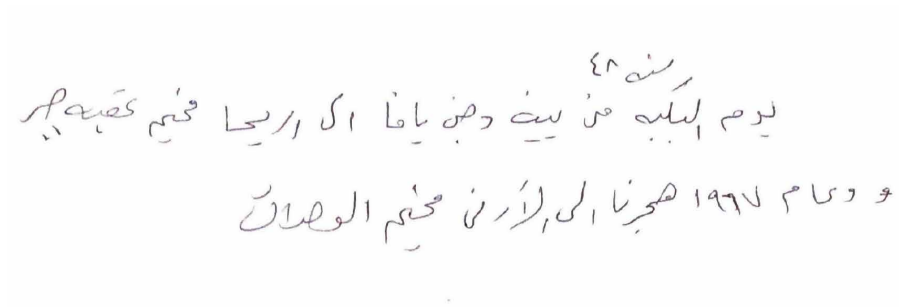 سنه ٤٨
يوم النكبه من بيت دجن يافا الى اريحا مخيم عقبه جبر
و وعام ١٩٦٧ هجرنا الى الأردن مخيم الوحدات